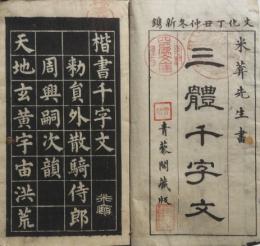 文化丁丑仲冬新鐫
米葊先生書
三體千字文
青藜閣藏版
楷書千字文
勅員外散騎侍郎
周興嗣次韻
天地玄黃宇宙洪荒